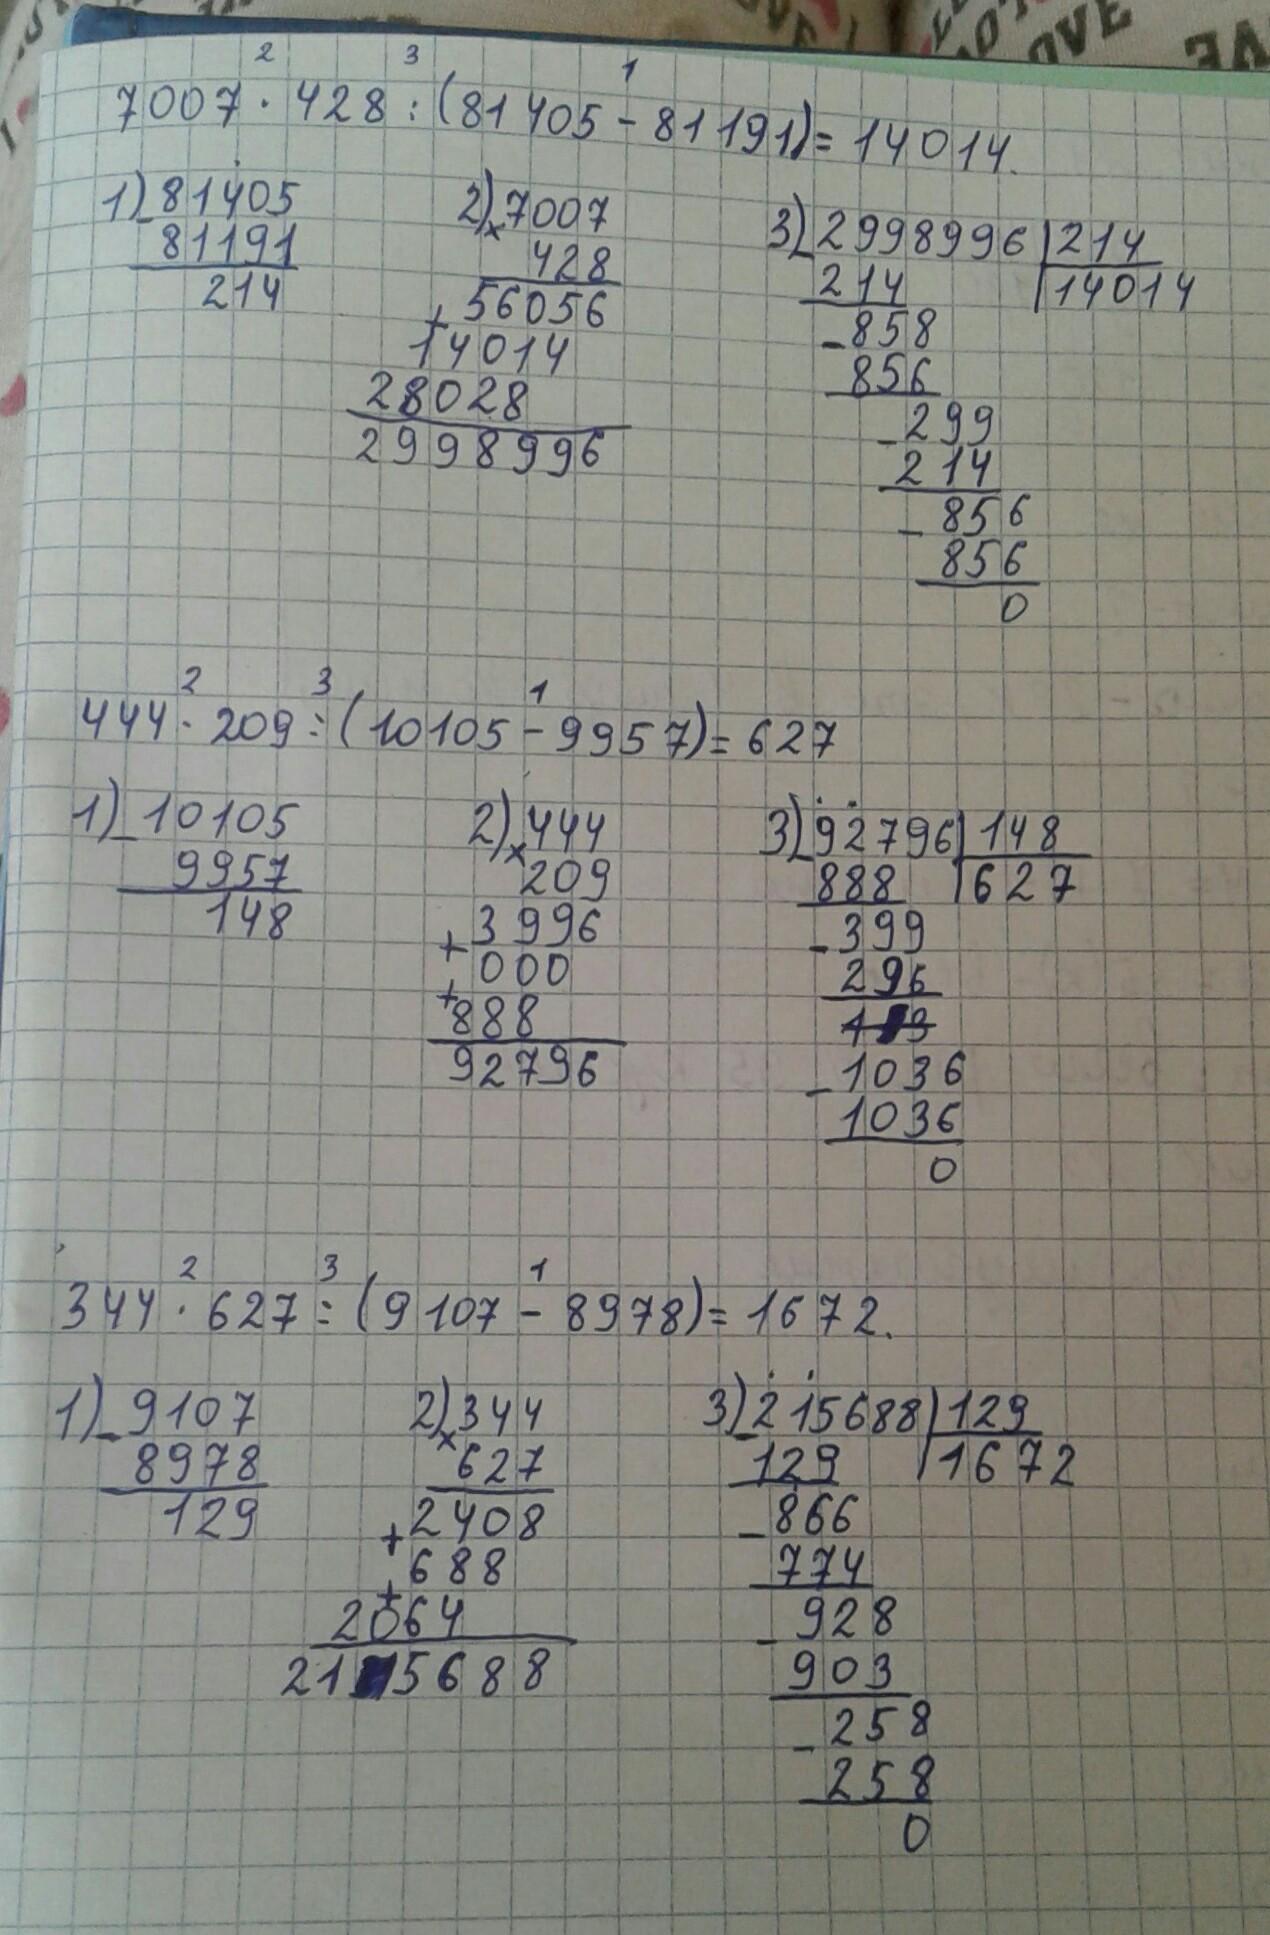 2 3 1
7007 · 428 : (81405 - 81191) = 14014.
1) 81405
- 81191
214
2) 7007
× 428
56056
+ 14014
28028
2998996
3) 2998996 | 214
- 214 | 14014
- 858
856
- 299
214
- 856
856
0
2 3 1
444 · 209 : (10105 - 9957) = 627
1) - 10105
9957
148
2) × 444
209
3996
+ 000
+ 888
92796
3) - 92796 | 148
888 | 627
- 399
296
- 1036
1036
0
2 3 1
344 · 627 : (9107 - 8978) = 1672.
1) - 9107
8978
129
2) × 344
627
+ 2408
+ 688
2064
215688
3) - 215688 | 129
129 | 1672
- 866
774
- 928
903
- 258
258
0